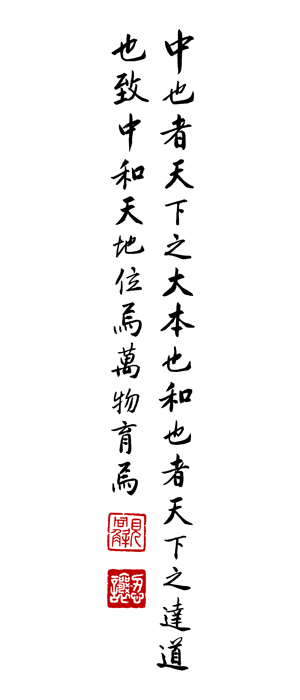 中也者天下之大本也和也者天下之達道
也致中和天地位焉萬物育焉